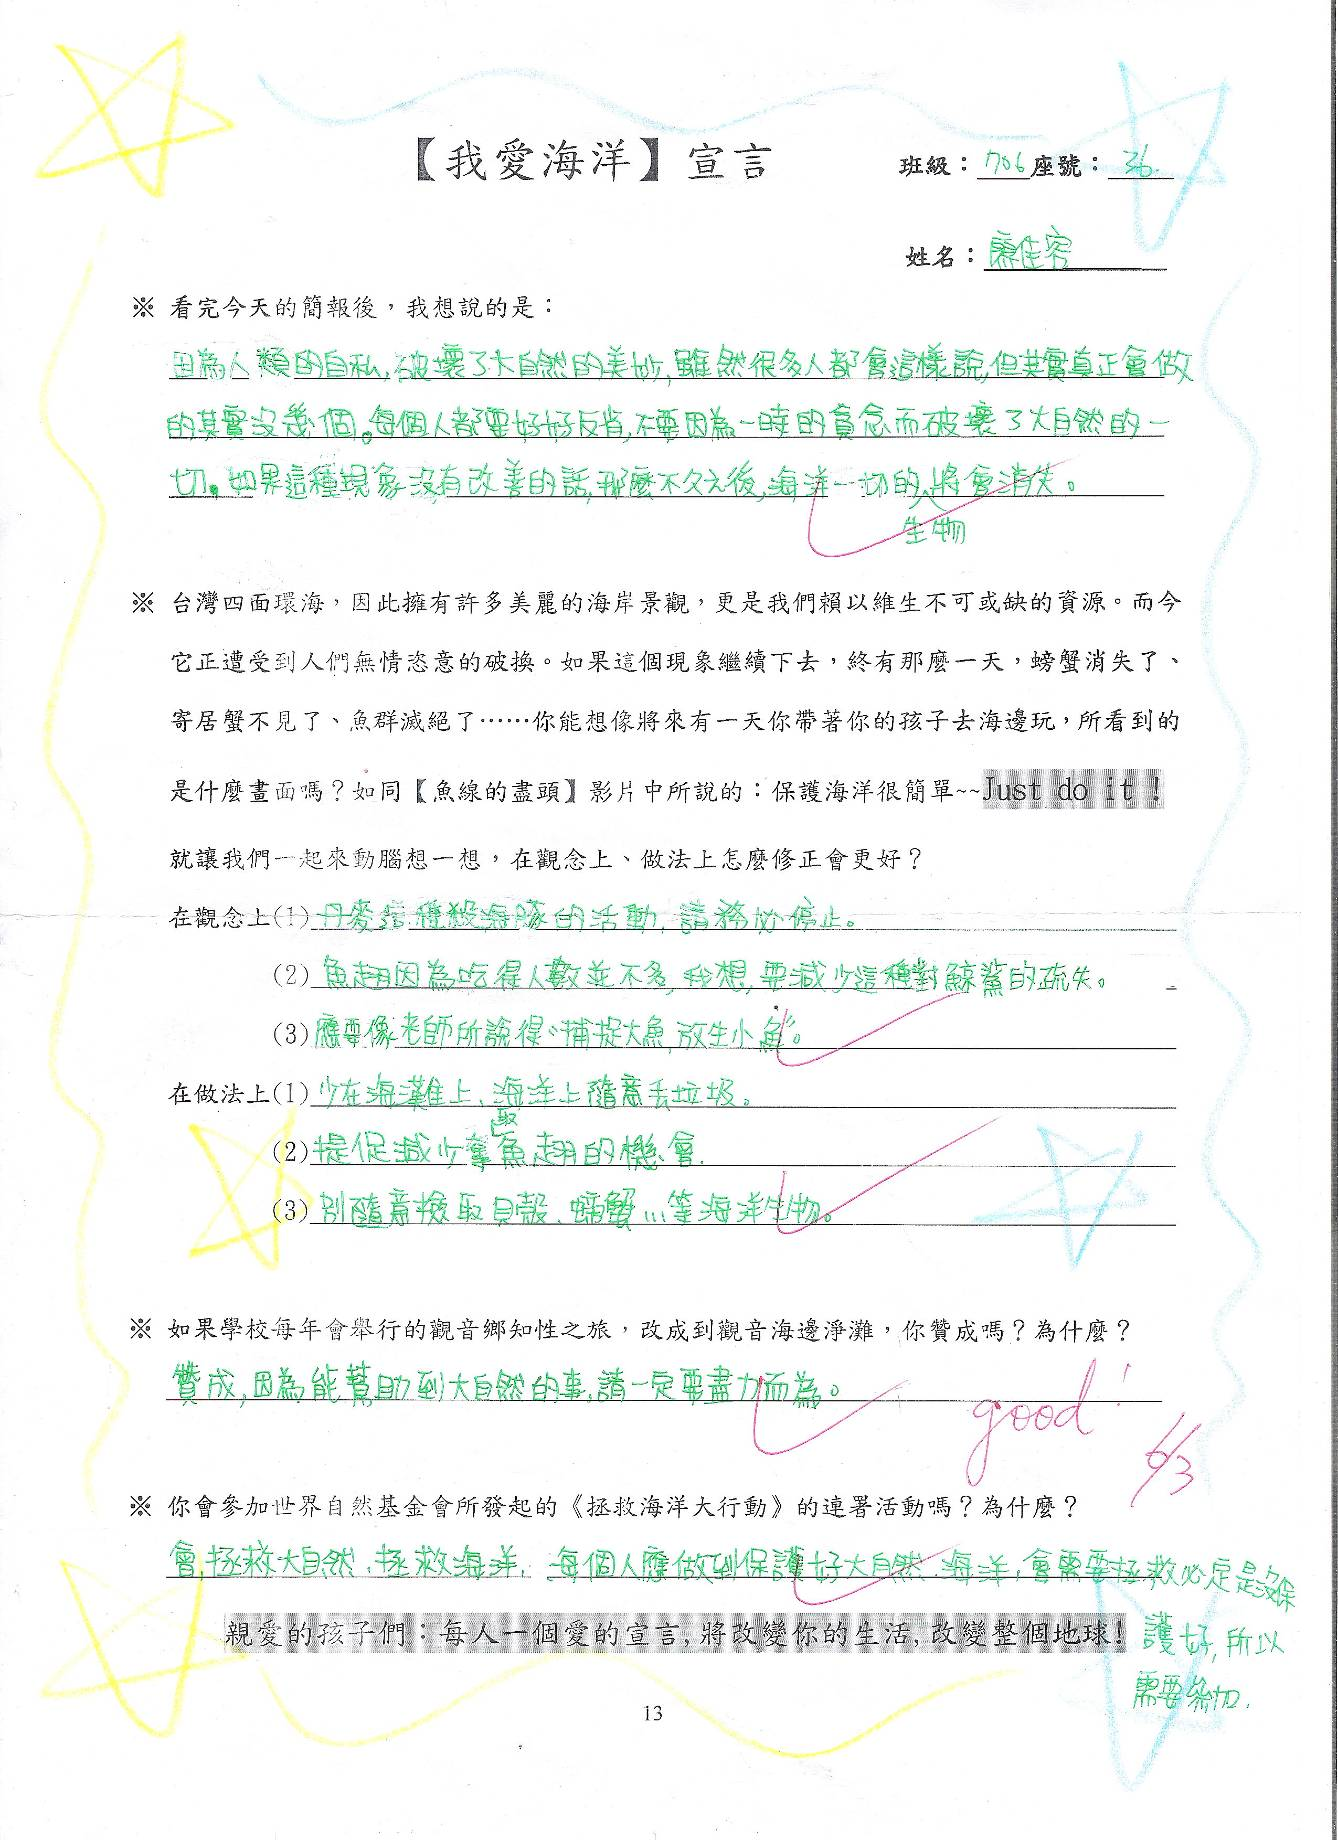 【我愛海洋】宣言 班級：706 座號：36.
姓名：廖佳容
※ 看完今天的簡報後，我想說的是：
因為人類的自私,破壞了大自然的美妙,雖然很多人都會這樣說,但其實真正會做
的其實沒幾個。每個人都要好好反省,不要因為一時的貪念而破壞了大自然的一
切。如果這種現象沒有改善的話,那麼不久之後,海洋一切的生物將會消失。
※ 台灣四面環海，因此擁有許多美麗的海岸景觀，更是我們賴以維生不可或缺的資源。而今
它正遭受到人們無情恣意的破換。如果這個現象繼續下去，終有那麼一天，螃蟹消失了、
寄居蟹不見了、魚群滅絕了……你能想像將來有一天你帶著你的孩子去海邊玩，所看到的
是什麼畫面嗎？如同【魚線的盡頭】影片中所說的：保護海洋很簡單~~Just do it！
就讓我們一起來動腦想一想，在觀念上、做法上怎麼修正會更好？
在觀念上(1)丹麥這種殺海豚的活動,請務必停止。
(2)魚翅因為吃得人數並不多,我想,要減少這種對鯨鯊的疏失。
(3)應要像老師所說得"捕捉大魚,放生小魚"。
在做法上(1)少在海灘上、海洋上隨意丟垃圾。
(2)提促減少奪取魚翅的機會.
(3)別隨意撿取貝殼、螃蟹…等海洋生物。
※ 如果學校每年會舉行的觀音鄉知性之旅，改成到觀音海邊淨灘，你贊成嗎？為什麼？
贊成,因為能幫助到大自然的事,請一定要盡力而為。
good!
6/3
※ 你會參加世界自然基金會所發起的《拯救海洋大行動》的連署活動嗎？為什麼？
會,拯救大自然、拯救海洋,每個人應做到保護好大自然、海洋,會需要拯救必定是沒保
護好,所以
需要參加.
親愛的孩子們：每人一個愛的宣言,將改變你的生活,改變整個地球!
13